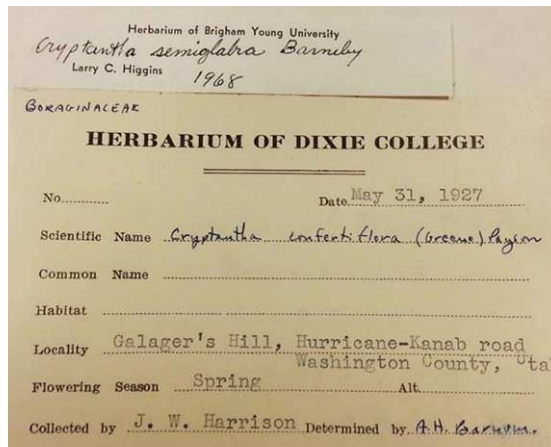 Herbarium of Brigham Young University
Cryptantha semiglabra Barneby
Larry C. Higgins
1968
BORAGINACEAE
HERBARIUM OF DIXIE COLLEGE
No.......... Date May 31, 1927
Scientific Name Cryptantha confertiflora (Greene) Payson
Common Name
Habitat
Locality Galager's Hill, Hurricane-Kanab road
Washington County, Uta
Flowering Season Spring Alt.
Collected by J. W. Harrison Determined by A.H. Barnum.